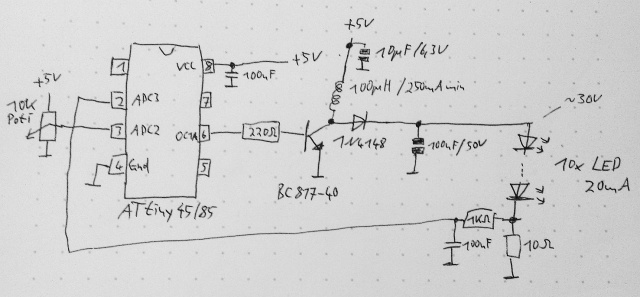 +5V
10µF/63V
1
VCC
8
+5V
100nF
100µH/250mA min
+5V
10k
Poti
2
ADC3
7
~30V
3
ADC2
OC1A
6
220Ω
1N4148
100nF/50V
4
Gnd
5
10x LED
20mA
BC817-40
ATtiny45/85
1KΩ
100nF
10Ω